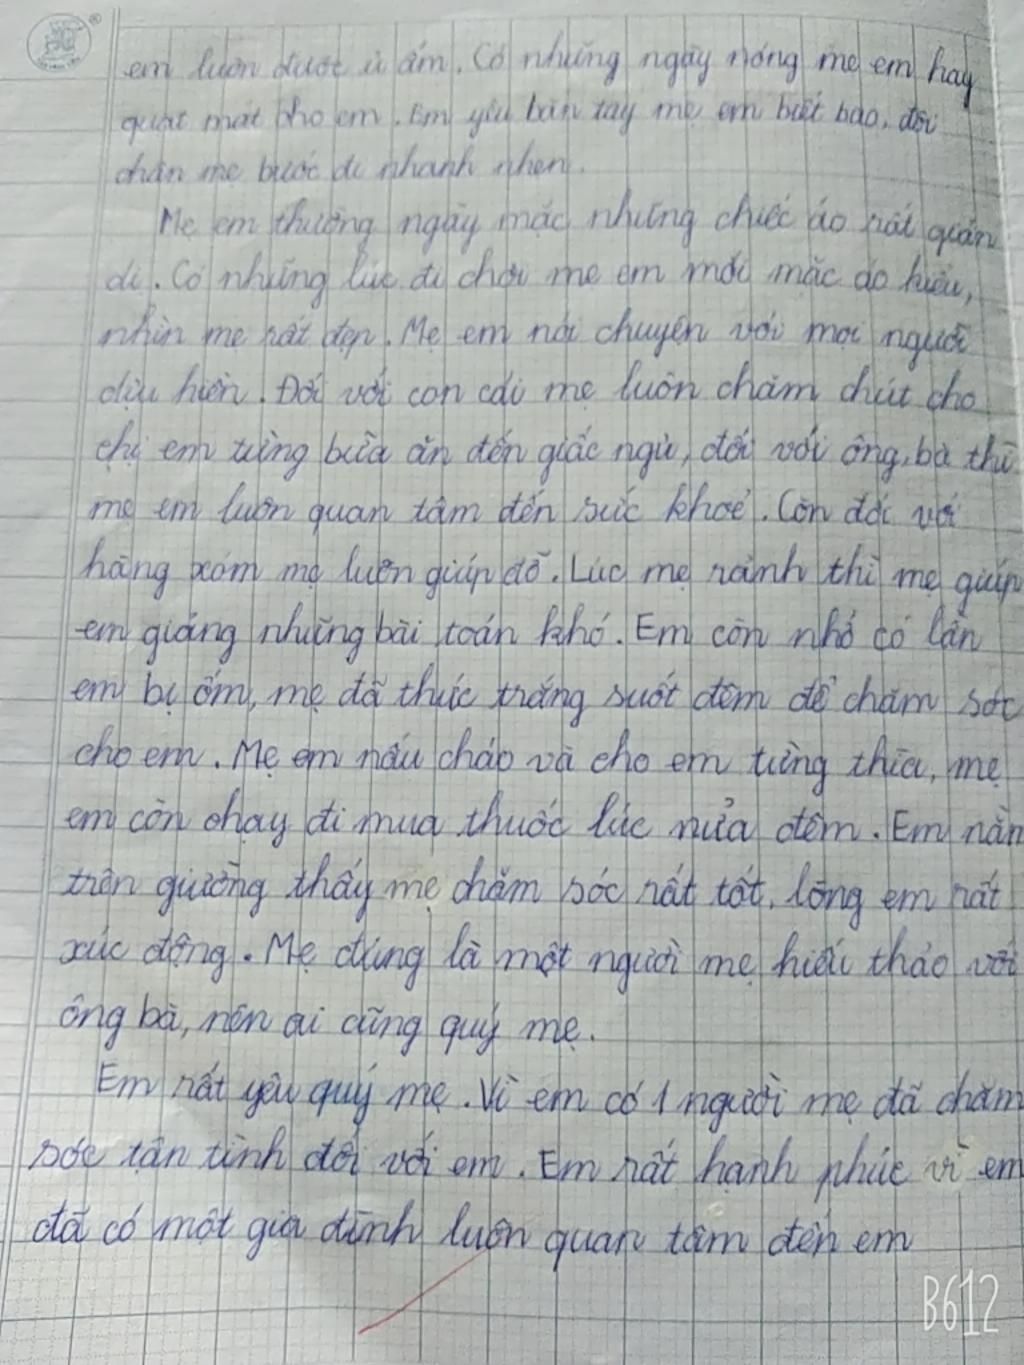 em luôn được ủ ấm. Có những ngày nóng mẹ em hay
quạt mát cho em. Em yêu bàn tay mẹ em biết bao, đôi
chân mẹ bước đi nhanh nhẹn.
Mẹ em thường ngày mặc những chiếc áo rất giản
dị. Có những lúc đi chơi mẹ em mới mặc áo kiểu,
nhìn mẹ rất đẹp. Mẹ em nói chuyện với mọi người
dịu hiền. Đối với con cái mẹ luôn chăm chút cho
chị em từng bữa ăn đến giấc ngủ, đối với ông, bà thì
mẹ em luôn quan tâm đến sức khoẻ. Còn đối với
hàng xóm mẹ luôn giúp đỡ. Lúc mẹ rảnh thì mẹ giúp
em giảng những bài toán khó. Em còn nhỏ có lần
em bị ốm, mẹ đã thức trắng suốt đêm để chăm sóc
cho em. Mẹ em nấu cháo và cho em từng thìa, mẹ
em còn chạy đi mua thuốc lúc nửa đêm. Em nằm
trên giường thấy mẹ chăm sóc rất tốt, lòng em rất
xúc động. Mẹ đúng là một người mẹ hiếu thảo với
ông bà, nên ai cũng quý mẹ.
Em rất yêu quý mẹ. Vì em có 1 người mẹ đã chăm
sóc tận tình đối với em. Em rất hạnh phúc vì em
đã có một gia đình luôn quan tâm đến em
B612